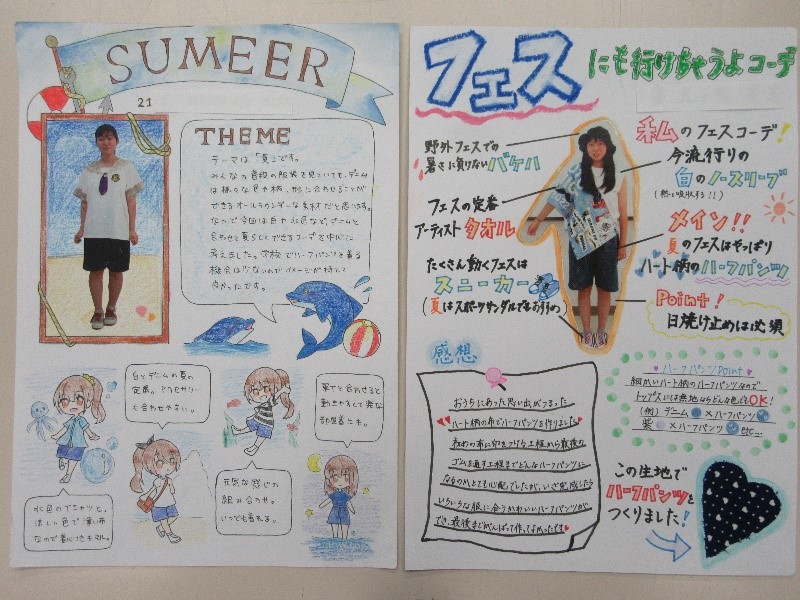 SUMEER
21
THEME
テーマは「夏」です。
みんなの普段の服装を見ていても、デニム
は様々な色や柄、形に合わせることが
できるオールラウンダーな素材だと思います。
なので今回は白や水色など、デニムと
合わせて夏らしくできるコーデを中心に
考えました。学校でハーフパンツを着る
機会は少ないのでイメージが持てて
良かったです。
白とデニムの夏の
定番。アクセサリー
と合わせやすい。
黒でと合わせると
動きやすくて楽な
部屋着にも。
水色のTシャツと。
涼しい色で薄い布
なので着心地も◎。
元気な感じの
組み合わせ。
いつでも着れる。
フェス にも行けちゃうよコーデ
私のフェスコーデ!
野外フェスでの
暑さに負けないバケハ
今流行りの
白のノースリーブ
(熱も吸収する!!)
フェスの定番
アーティストタオル
メイン!!
夏のフェスはやっぱり
ハート柄のハーフパンツ
たくさん動くフェスは
スニーカー
(夏はスポーツサンダルでもおすすめ)
Point!
日焼け止めは必須
感想
おうちにあった思い出がつまった
ハート柄の布でハーフパンツを作りました
初めの布に印をつける工程から最後の
ゴムを通す工程までどんなハーフパンツに
なるのかとても心配でしたが、いざ完成したら
いろいろな服に合うかわいいハーフパンツが
でき、最後までがんばって作ってよかったです
ハーフパンツPoint
細かいハート柄のハーフパンツなので
トップスには無地ならどんな色でもOK!
(例) デニム × ハーフパンツ
紫 × ハーフパンツ
etc...
この生地で
ハーフパンツを
つくりました!